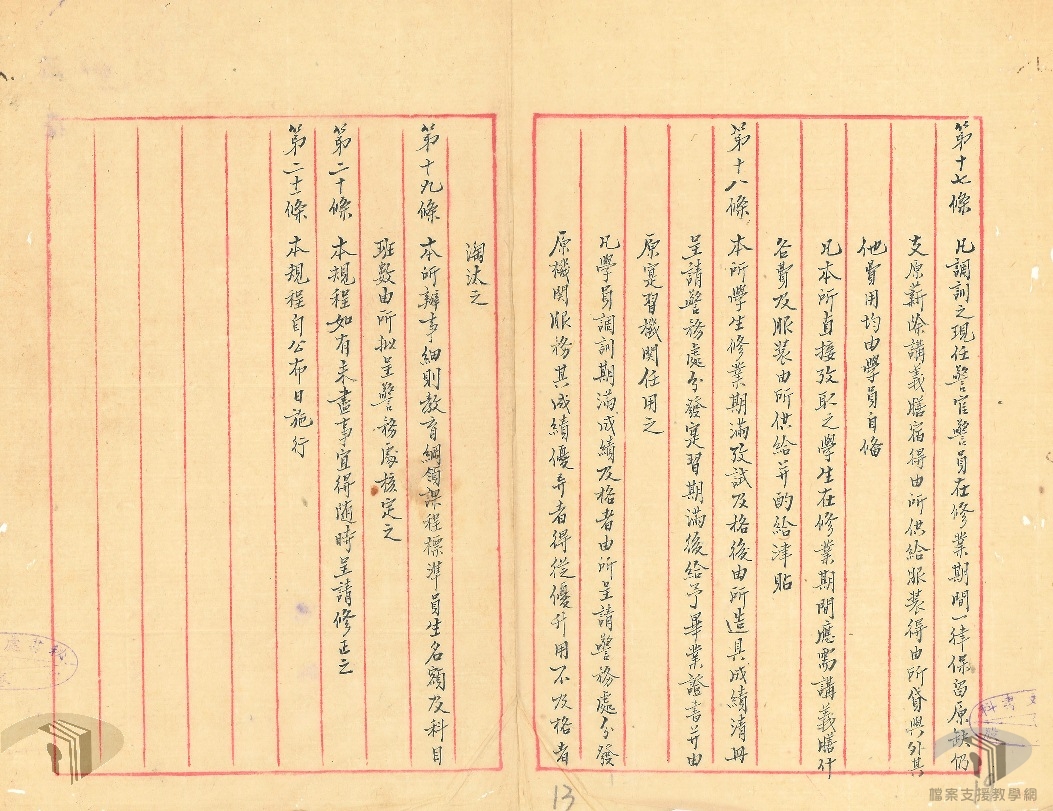 第十七條 凡調訓之現任警官警員在修業期間一律保留原缺仍
支原薪除講義膳宿得由所供給服裝得由所貸與外其
他費用均由學員自備
凡本所直接攷取之學生在修業期間應需講義膳什
各費及服裝由所供給并酌給津貼
第十八條 本所學生修業期滿攷試及格後由所造具成績清冊
呈請警務處分發寔習期滿後給予畢業證書并由
原寔習機関任用之
凡學員調訓期滿成績及格者由所呈請警務處分發
原機関服務其成績優异者得從優升用不及格者
淘汰之
第十九條 本所辦事細則教育綱領課程標準員生名額及科目
班數由所拟呈警務處核定之
第二十條 本規程如有未盡事宜得随時呈請修正之
第二十一條 本規程自公布日施行
13
文書科
檔案支援教學網